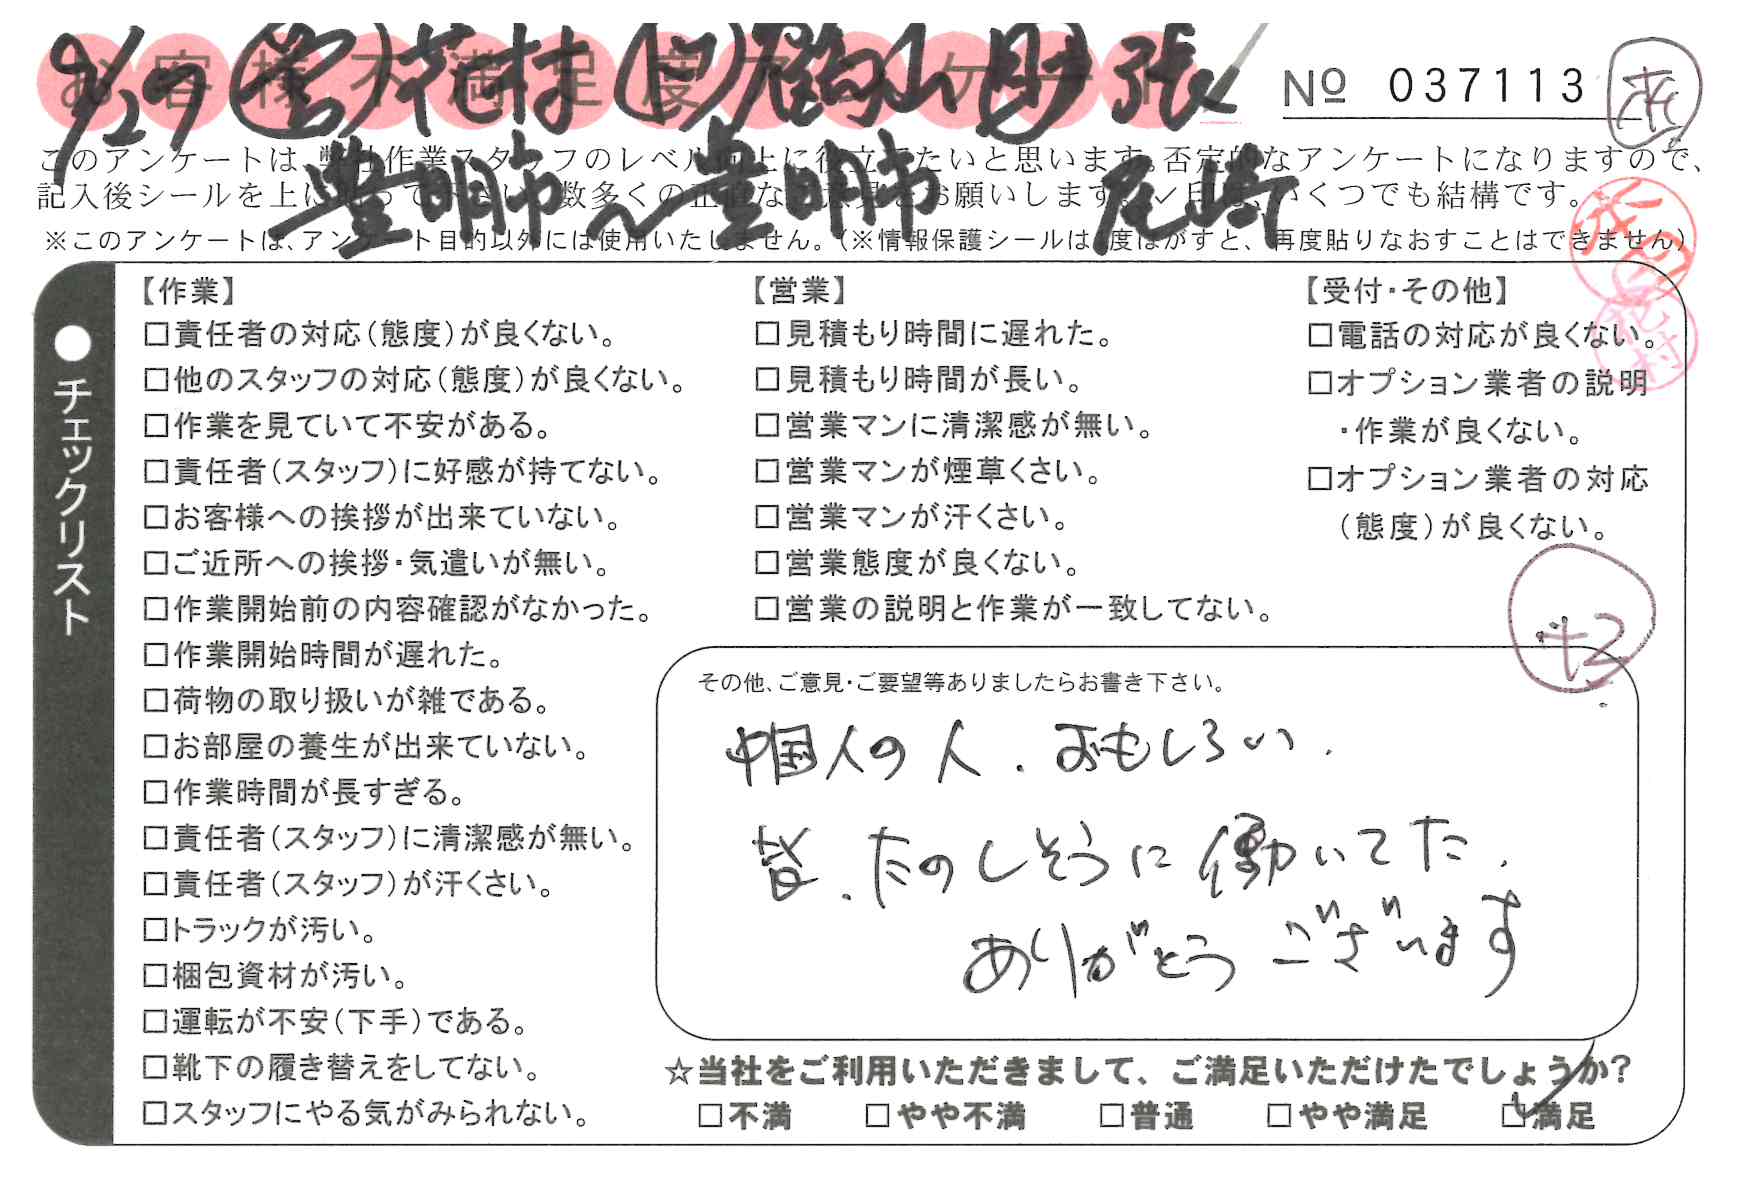 お客様不満足度アンケート
9/27 花村 山 張
No 037113
花
豊明市〜豊明市 尾崎
このアンケートは、弊社作業スタッフのレベル向上に役立てたいと思います。否定的なアンケートになりますので、
記入後シールを上に貼って下さい。数多くの正直なご意見をお願いします。✓印は、いくつでも結構です。
※このアンケートは、アンケート目的以外には使用いたしません。(※情報保護シールは1度はがすと、再度貼りなおすことはできません)
●チェックリスト
【作業】
□責任者の対応(態度)が良くない。
□他のスタッフの対応(態度)が良くない。
□作業を見ていて不安がある。
□責任者(スタッフ)に好感が持てない。
□お客様への挨拶が出来ていない。
□ご近所への挨拶・気遣いが無い。
□作業開始前の内容確認がなかった。
□作業開始時間が遅れた。
□荷物の取り扱いが雑である。
□お部屋の養生が出来ていない。
□作業時間が長すぎる。
□責任者(スタッフ)に清潔感が無い。
□責任者(スタッフ)が汗くさい。
□トラックが汚い。
□梱包資材が汚い。
□運転が不安(下手)である。
□靴下の履き替えをしてない。
□スタッフにやる気がみられない。
【営業】
□見積もり時間に遅れた。
□見積もり時間が長い。
□営業マンに清潔感が無い。
□営業マンが煙草くさい。
□営業マンが汗くさい。
□営業態度が良くない。
□営業の説明と作業が一致してない。
【受付・その他】
□電話の対応が良くない。
□オプション業者の説明
・作業が良くない。
□オプション業者の対応
(態度)が良くない。
花村
+2
その他、ご意見・ご要望等ありましたらお書き下さい。
中国人の人.おもしろい.
皆.たのしそうに働いてた.
ありがとうございます
☆当社をご利用いただきまして、ご満足いただけたでしょうか?
□不満 □やや不満 □普通 □やや満足 ☑満足